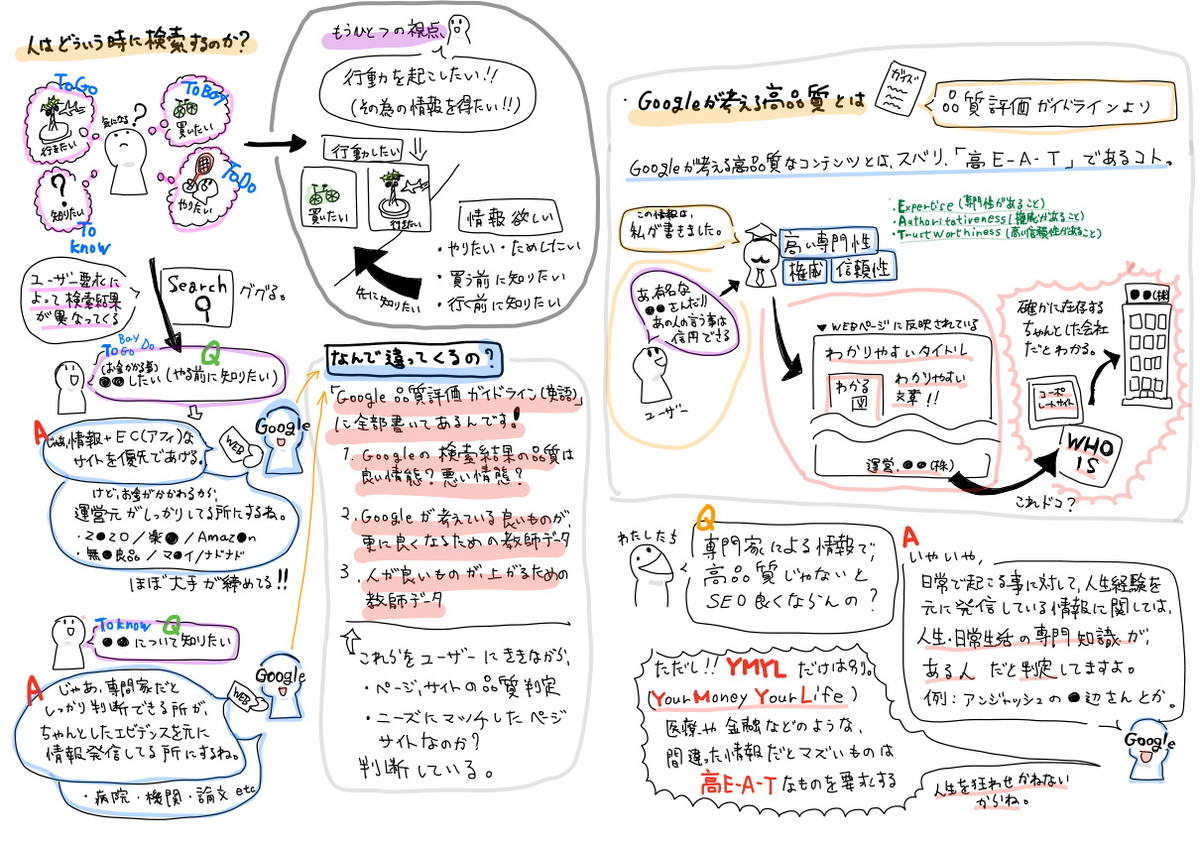 人はどういう時に検索するのか?
To Go
行きたい
気になる
?
To Bay
買いたい
?
知りたい
To
know
To Do
やりたい
もうひとつの視点
行動を起こしたい!!
(その為の情報を得たい!!)
行動したい
買いたい
行きたい
情報欲しい
・やりたい・ためしたい
・買う前に知りたい
・行く前に知りたい
先に知りたい
ユーザー要求に
よって検索結果
が異なってくる
Search
ググる。
Bay
To Go Do
Q
(お金かかる事)
●●したい(やる前に知りたい)
A
じゃあ、情報+EC(アフィ)な
サイトを優先であげる。
WEB
Google
けど、お金がかかわるから、
運営元がしっかりしてる所にするね。
・Z●Z○/楽●/Amaz●n
・無●良品/マ●イ/ナドナド
ほぼ大手が締めてる!!
To know
Q
●●について知りたい
A
じゃあ、専門家だと
しっかり判断できる所が、
ちゃんとしたエビデンスを元に
情報発信してる所にするね。
WEB
Google
・病院・機関・論文 etc
なんで違ってくるの?
「Google 品質評価ガイドライン(英語)」
に全部書いてあるんです!
1. Googleの検索結果の品質は
良い情態?悪い情態?
2. Googleが考えている良いものが、
更に良くなるための教師データ
3. 人が良いものが、上がるための
教師データ
これらをユーザーにききながら、
・ページ、サイトの品質判定
・ニーズにマッチしたページ
サイトなのか?
判断している。
・Googleが考える高品質とは
ガイド
品質評価ガイドラインより
Googleが考える高品質なコンテンツとは、ズバリ、「高E-A-T」であるコト。
・Expertise(専門性があること)
・Authoritativeness(権威があること)
・Trustworthiness(高い信頼性があること)
この情報は、
私が書きました。
高い専門性
権威
信頼性
あ、有名な
●●さんだ!!
あの人の言う事は
信用できる
ユーザー
▼WEBページに反映されている
わかりやすいタイトル
わかる
わかりやすい
文素!!
運営、●●(株)
これドコ?
確かに在存する
ちゃんとした会社
だとわかる。
●●(株)
コーポ
レートサイト
WHO
IS
わたしたち
Q
専門家による情報で、
高品質じゃないと
SEO良くならんの?
A
いやいや、
日常で起こる事に対して、人生経験を
元に発信している情報に関しては、
人生・日常生活の専門知識が、
ある人だと判定してますよ。
例:アンジャッシュの●辺さんとか。
Google
ただし!!YMYLだけは別。
(Your Money Your Life)
医療や金融などのような、
間違った情報だとマズいものは
高E-A-Tなものを要求する
人生を狂わせかねない
からね。